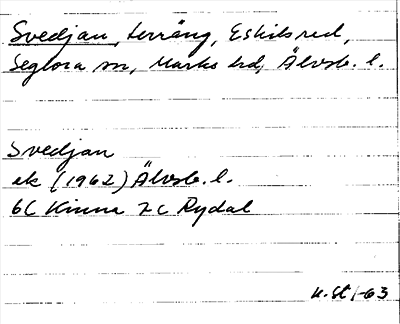 Svedjan, terräng, Eskilsred,
Seglora sn, Marks hd, Älvsb. l.
Svedjan
ek (1962) Älvsb. l.
6C Kinna 7c Rydal
K.St 1-63